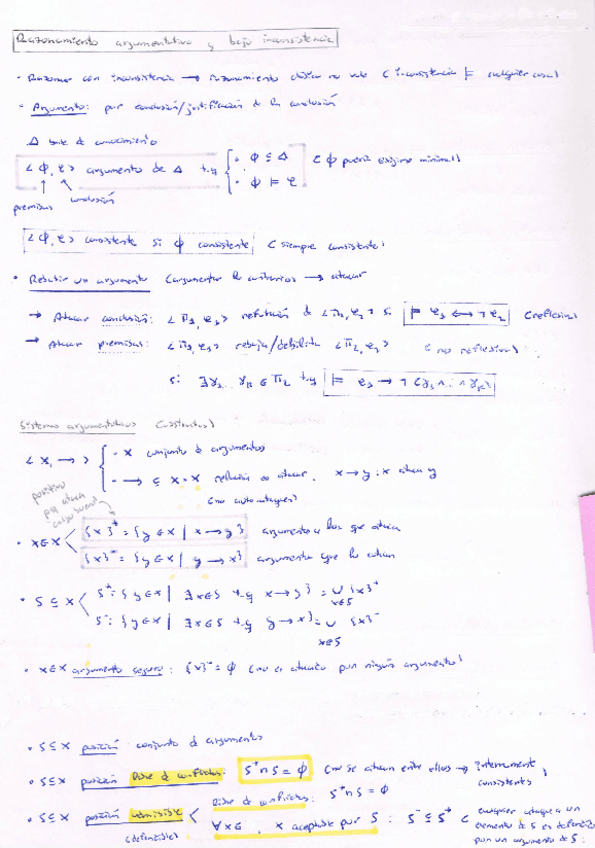 Razonamiento argumentativo y bajo inconsistencia
• Razonar con inconsistencia → Razonamiento clásico no vale (inconsistencia ⊨ cualquier cosa)
• Argumento: par conclusión/justificación de la conclusión
Δ base de conocimiento
<Φ, φ> argumento de Δ t.q { • Φ ⊆ Δ (Φ puede exigirse minimal)
• Φ ⊨ φ
premisas conclusión
<Φ, φ> consistente si Φ consistente (siempre consistente)
• Rebatir un argumento (argumentar lo contrario) → atacar
→ Atacar conclusión: <Π1, φ1> refutación de <Π2, φ2> si ⊨ φ1 ↔ ¬φ2 (reflexiva)
→ Atacar premisas: <Π1, φ1> rebaja/debilita <Π2, φ2> (no reflexiva)
si ∃γ1... γk ∈ Π2 t.q ⊨ φ1 → ¬(γ1 ∧ .. ∧ γk)
Sistemas argumentativos (abstractos)
<X, →> { - X conjunto de argumentos
- → ⊆ X × X relación de atacar. x → y : x ataca y
(no autoataques)
positivo pq ataca
• x∈X < {x}⁺ = {y ∈ X | x → y} argumentos a los que ataca
{x}⁻ = {y ∈ X | y → x} argumentos que lo atacan
• S ⊆ X < S⁺ = {y ∈ X | ∃x∈S t.q x → y} = ∪ x∈S {x}⁺
S⁻ = {y ∈ X | ∃x∈S t.q y → x} = ∪ x∈S {x}⁻
• x∈X argumento seguro: {x}⁻ = ∅ (no es atacado por ningún argumento)
• S ⊆ X posición conjunto de argumentos
• S ⊆ X posición libre de conflictos: S⁺ ∩ S = ∅ (no se atacan entre ellos → internamente consistentes)
Libre de conflictos: S⁺ ∩ S = ∅
• S ⊆ X posición admisible < ∀x∈ , x aceptable por S : S⁻ ⊆ S⁺ ( cualquier ataque a un
(defendible) elemento de S es defendido
por un argumento de S.